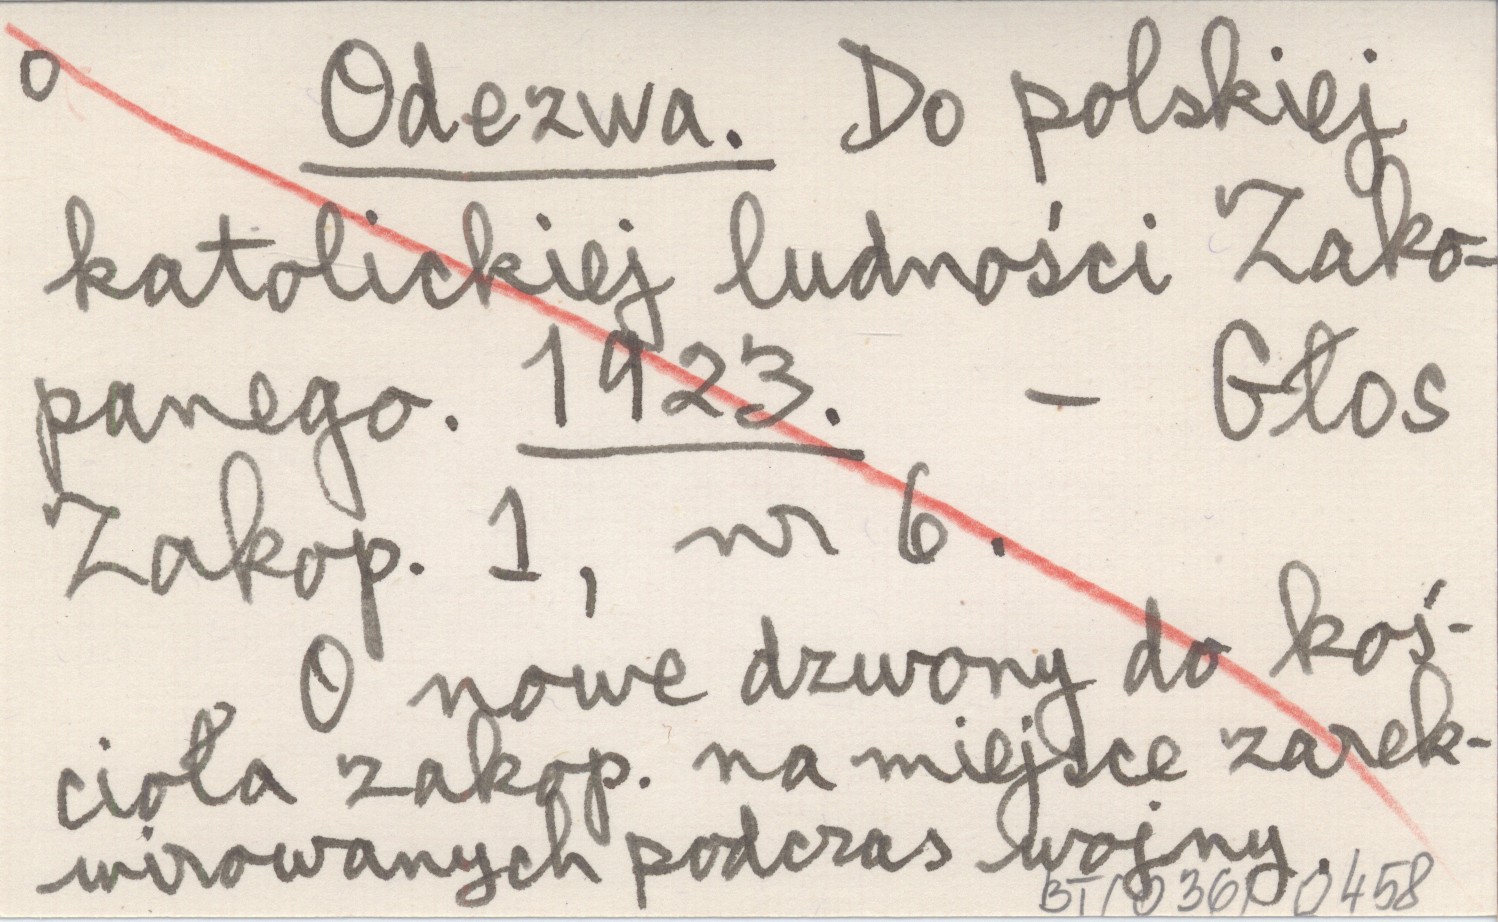 o Odezwa. Do polskiej
katolickiej ludności Zako-
panego. 1923. - Głos
Zakop. 1, nr 6.
O nowe dzwony do koś-
cioła zakop. na miejsce zarek-
wirowanych podczas wojny.
BT/036/0458